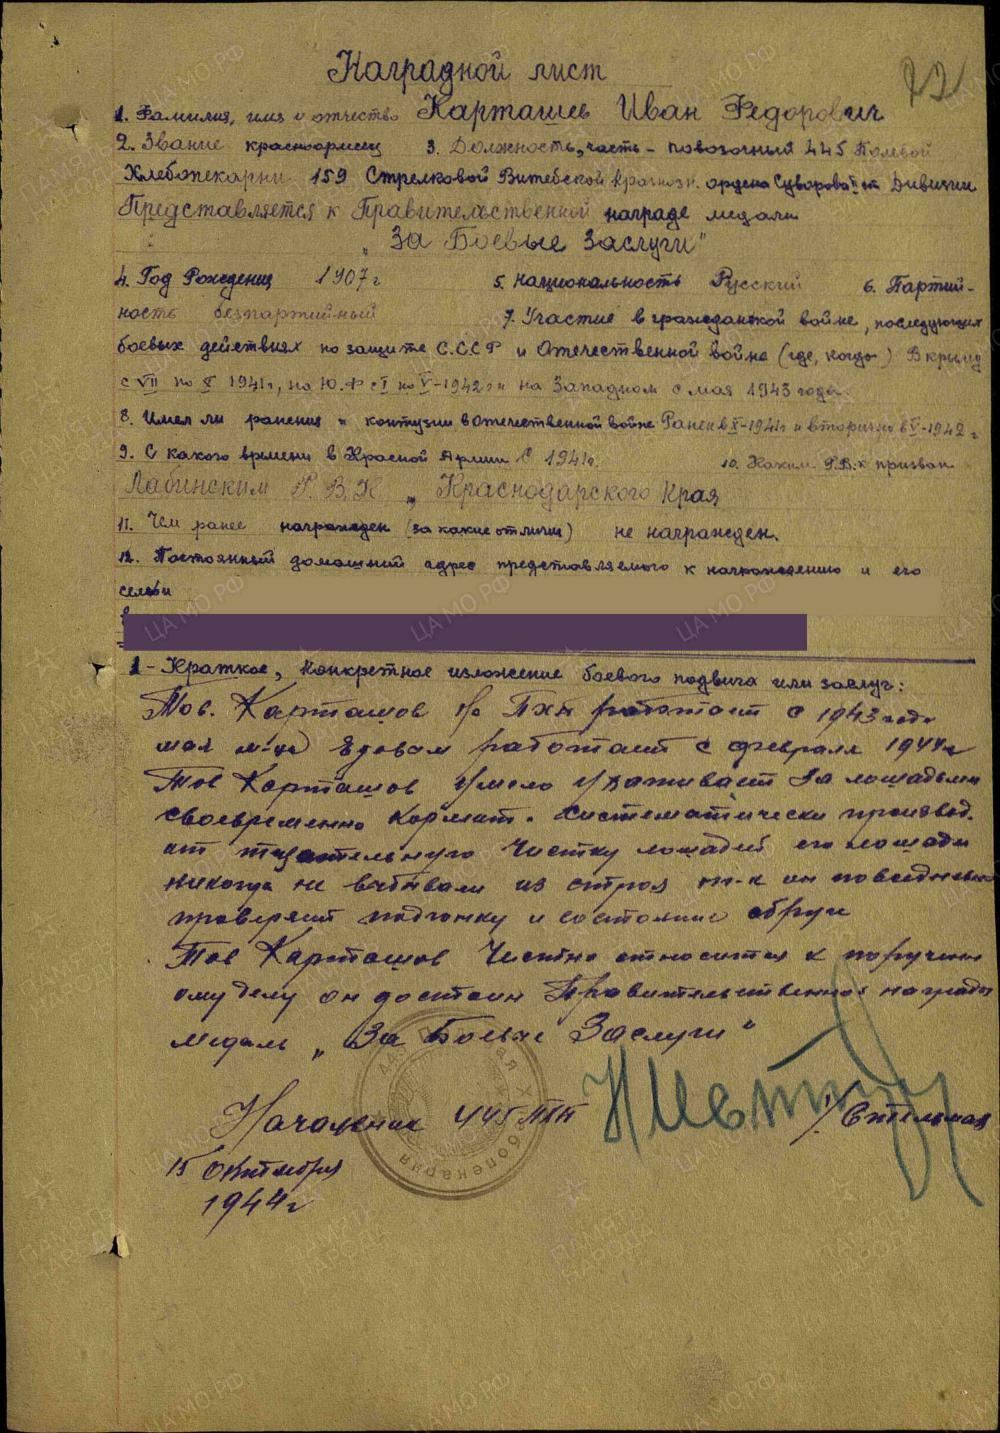 Наградной лист
1. Фамилия, имя и отчество Карташев Иван Федорович
2. Звание красноармеец 3. Должность, часть - повозочный 445 Полевой
Хлебопекарни 159 Стрелковой Витебской Краснозн. ордена Суворова II ст Дивизии
Представляется к Правительственной награде медали
"За Боевые Заслуги"
4. Год Рождения 1907 г 5. Национальность Русский 6. Партий-
ность безпартийный 7. Участие в гражданской войне, последующих
боевых действиях по защите С.С.С.Р и Отечественной войне (где, когда) В крыму
с VII по X 1941г, на Ю.Ф с I по V-1942г и на Западном с мая 1943 года.
8. Имел ли ранения и контузии в Отечественной войне Ранен в X-1941г и вторично в V-1942 г
9. С какого времени в Красной Армии С 1941г. 10. Каким Р.В.к призван
Лабинским Р.В.К, Краснодарского Края
11. Чем ранее награжден (за какие отличии) не награжден.
12. Постоянный домашний адрес представляемого к награждению и его
семьи
1 - Краткое, конкретное изложение боевого подвига или заслуг:
Тов. Карташов в ПХП работает с 1943 года
мая м-ца Ездовым работает с февраля 1944г
Тов Карташов умело ухаживает за лошадьми
своевременно кормит. систематически производ.
ит тщательную чистку лошадей его лошади
никогда не выбывали из строя т-к он повседневно
проверяет подгонку и состояние сбруи
Тов Карташов Честно относится к поручен
ому делу он достоин Правительственной награды
медаль "За Боевые Заслуги"
Начальник 445 ПХП
15 октября
1944г